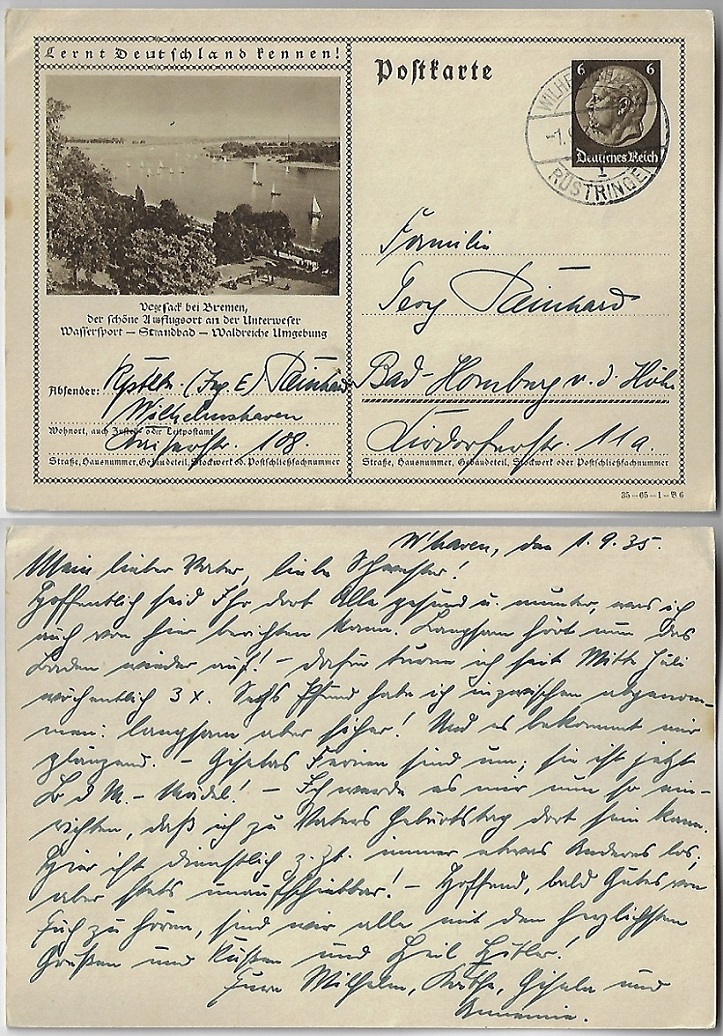 Lernt Deutschland kennen!
Postkarte
6 6
Deutsches Reich
WILHELMSHAVEN
-1.
1
RÜSTRINGEN
Vegesack bei Bremen,
der schöne Ausflugsort an der Unterweser
Wassersport — Strandbad — Waldreiche Umgebung
Absender: Kptltn. (Ing. E) Reinhard
Wilhelmshaven
Wohnort, auch Zustell- oder Leitpostamt
108
Straße, Hausnummer, Gebäudeteil, Stockwerk od. Postschließfachnummer
Familie
Georg Reinhard
Bad-Homburg v. d. Höhe
11a.
Straße, Hausnummer, Gebäudeteil, Stockwerk oder Postschließfachnummer
35—65—1—B 6
W'haven, den 1.9.35.
Mein lieber Vater, liebe Schwester!
Hoffentlich seid Ihr dort Alle gesund u. munter, was ich
auch von hier berichten kann. Langsam hört nun das
Baden wieder auf! – dafür turne ich seit Mitte Juli
wöchentlich 3 x. Sechs Pfund habe ich inzwischen abgenom-
men: langsam aber sicher! Und es bekommt mir
glänzend. – Giselas Ferien sind um; sie ist jetzt
B d M. – Mädel! – Ich werde es mir nun so ein-
richten, daß ich zu Vaters Geburtstag dort sein kann.
Hier ist dienstlich z. Zt. immer etwas Anderes los,
aber stets unaufschiebbar! – Hoffend, bald Gutes von
Euch zu hören, sind wir alle mit den herzlichsten
Grüßen und Küssen und Heil Hitler!
Eure Wilhelm, Käthe, Gisela und
Annemie.